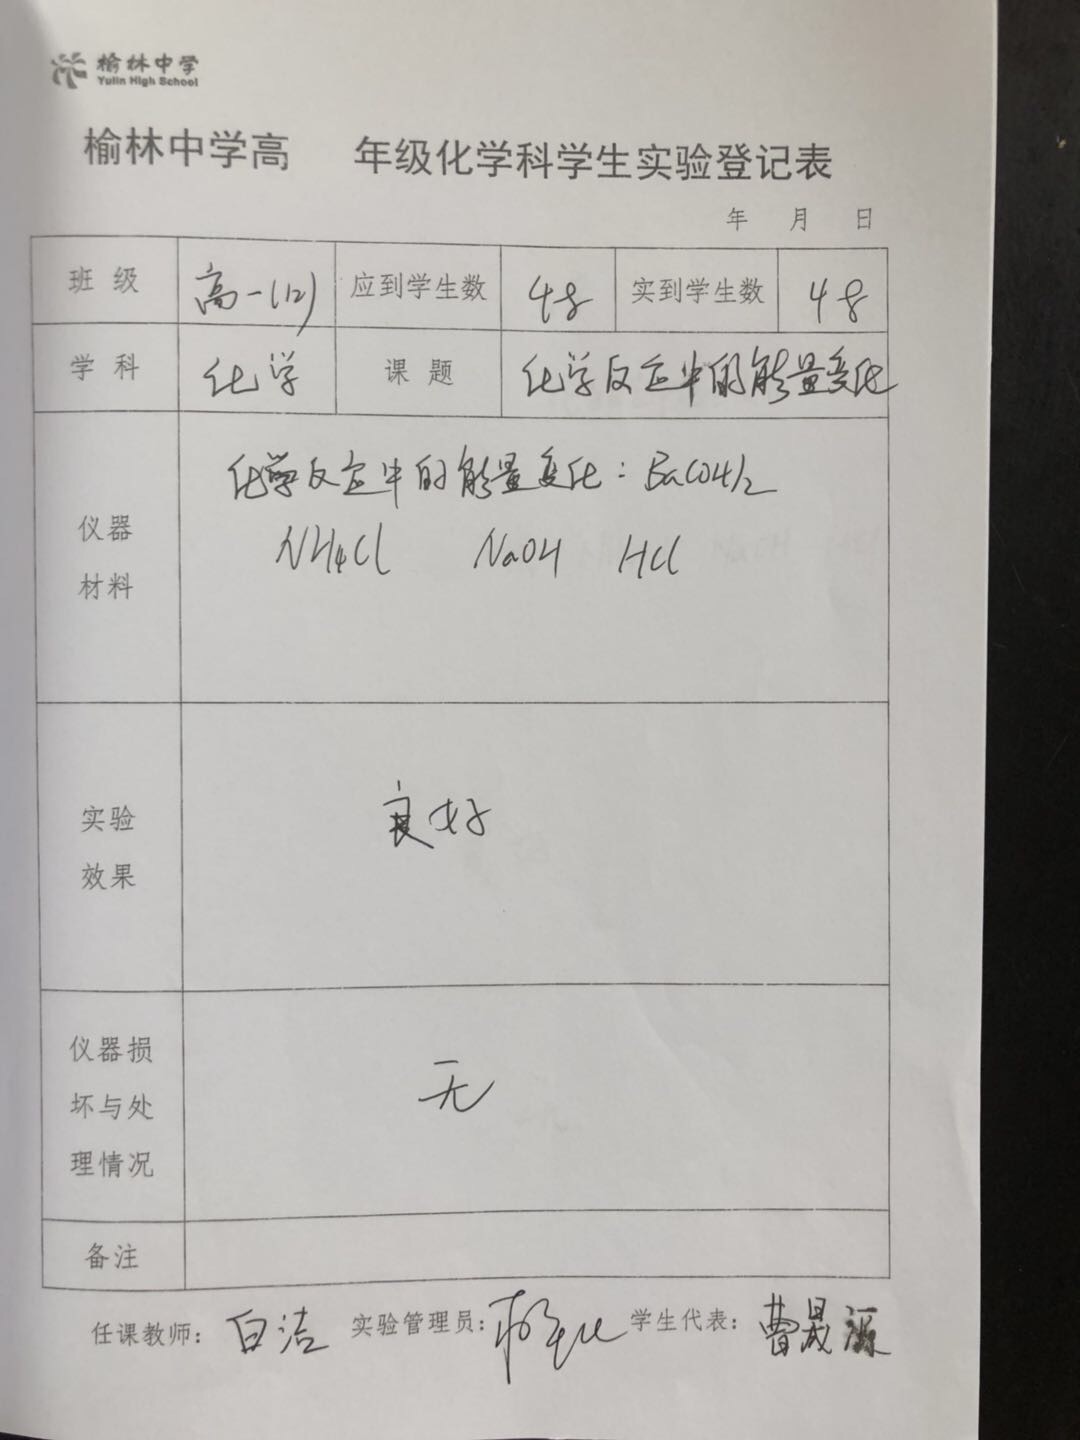 榆林中学
Yulin High School
榆林中学高 年级化学科学生实验登记表
年 月 日
班 级 高一(12) 应到学生数 48 实到学生数 48
学 科 化学 课 题 化学反应中的能量变化
仪器
材料
化学反应中的能量变化：Ba(OH)2
NH4Cl NaOH HCl
实验
效果
良好
仪器损
坏与处
理情况
无
备注
任课教师： 白洁 实验管理员： 学生代表： 曹晟源